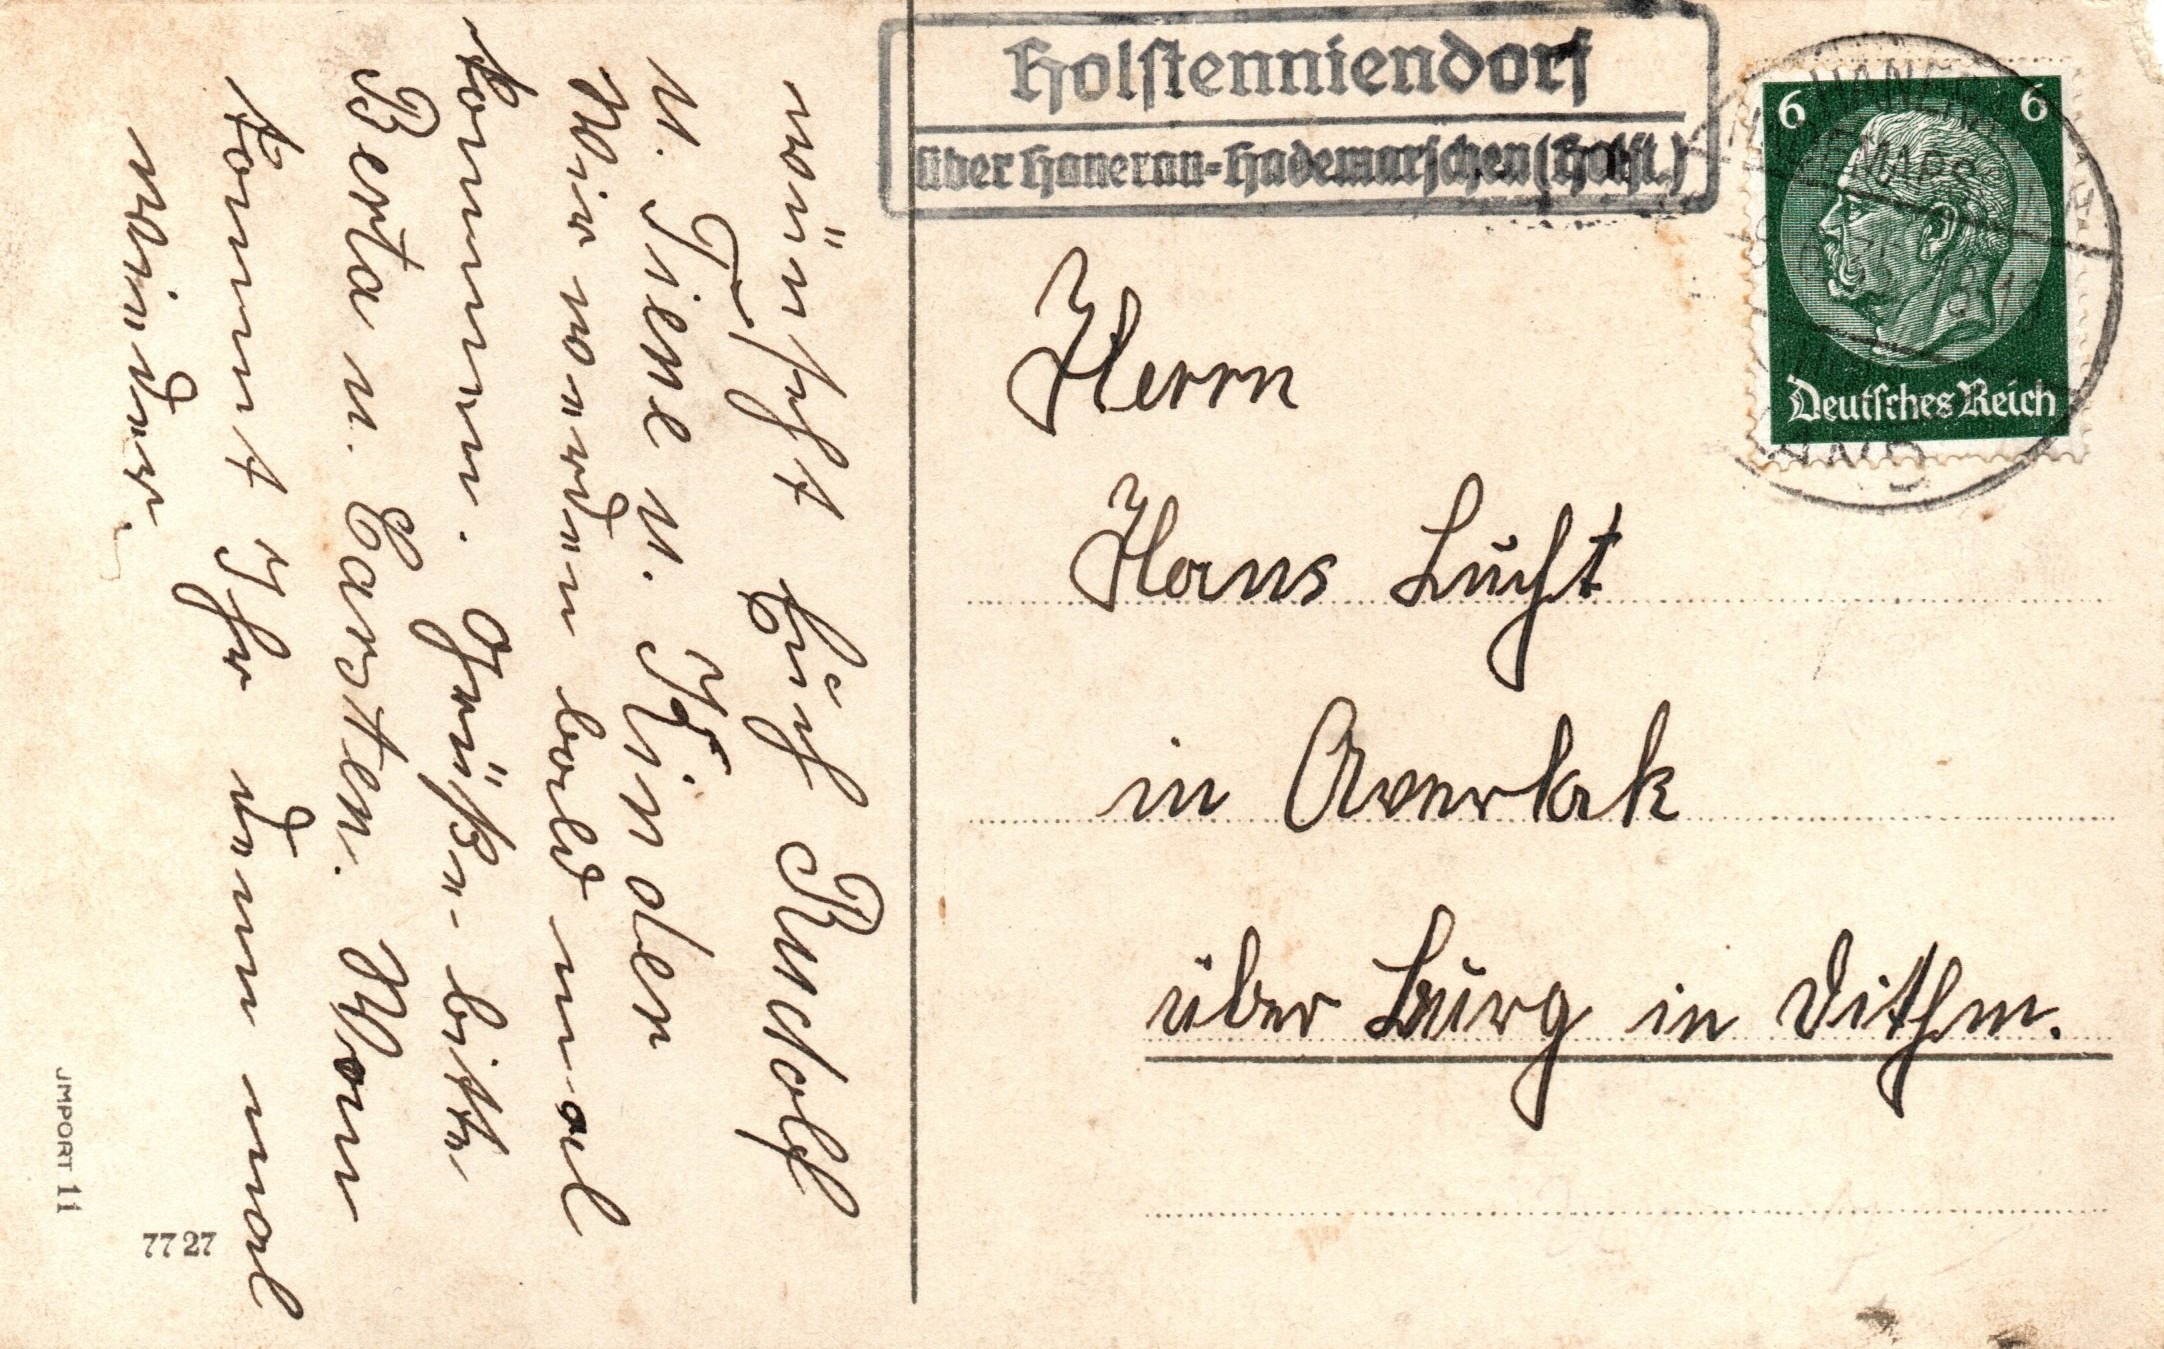 wünscht Euch Rudolf
u. Tiene u. Kinder
Wir werden bald mal
kommen. Grüße bitte
Berta u. Carsten. Wann
kommt Ihr denn mal
wieder.
JMPORT 11
7727
Holstenniendorf
über Hanerau-Hademarschen (Holst.)
6 6
Deutsches Reich
Herrn
Hans Lucht
in Averlak
über Burg in Dithm.